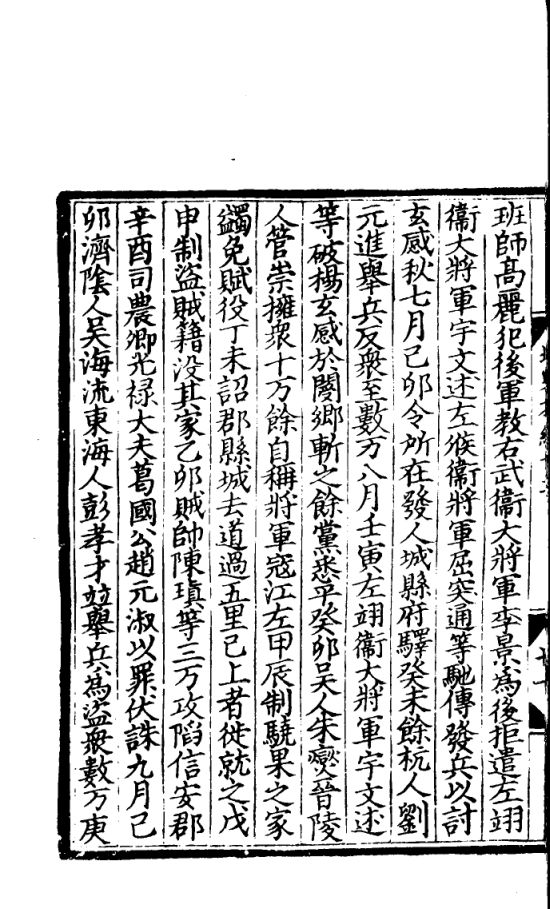 班師髙麗犯後軍敕右武衞大將軍李景為後拒遣左翊
衞大將軍宇文述左候衞將軍屈突通等馳傳發兵以討
玄感秋七月己卯令所在發人城縣府驛癸未餘杭人劉
元進舉兵反衆至數万八月壬寅左翊衞大將軍宇文述
等破楊玄感於閿鄉斬之餘黨悉平癸卯吴人朱燮晉陵
人管崇擁衆十万餘自稱將軍寇江左甲辰制驍果之家
蠲免賦役丁未詔郡縣城去道過五里已上者徙就之戊
申制盜賊籍没其家乙卯賊帥陳瑱等三万攻陷信安郡
辛酉司農卿光禄大夫葛國公趙元淑以罪伏誅九月己
卯濟隂人吴海流東海人彭孝才並舉兵為盜衆數万庚